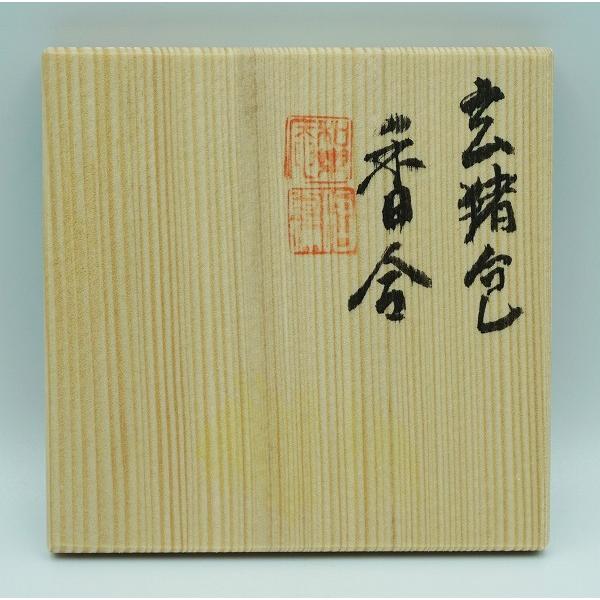 玄猪包
香合